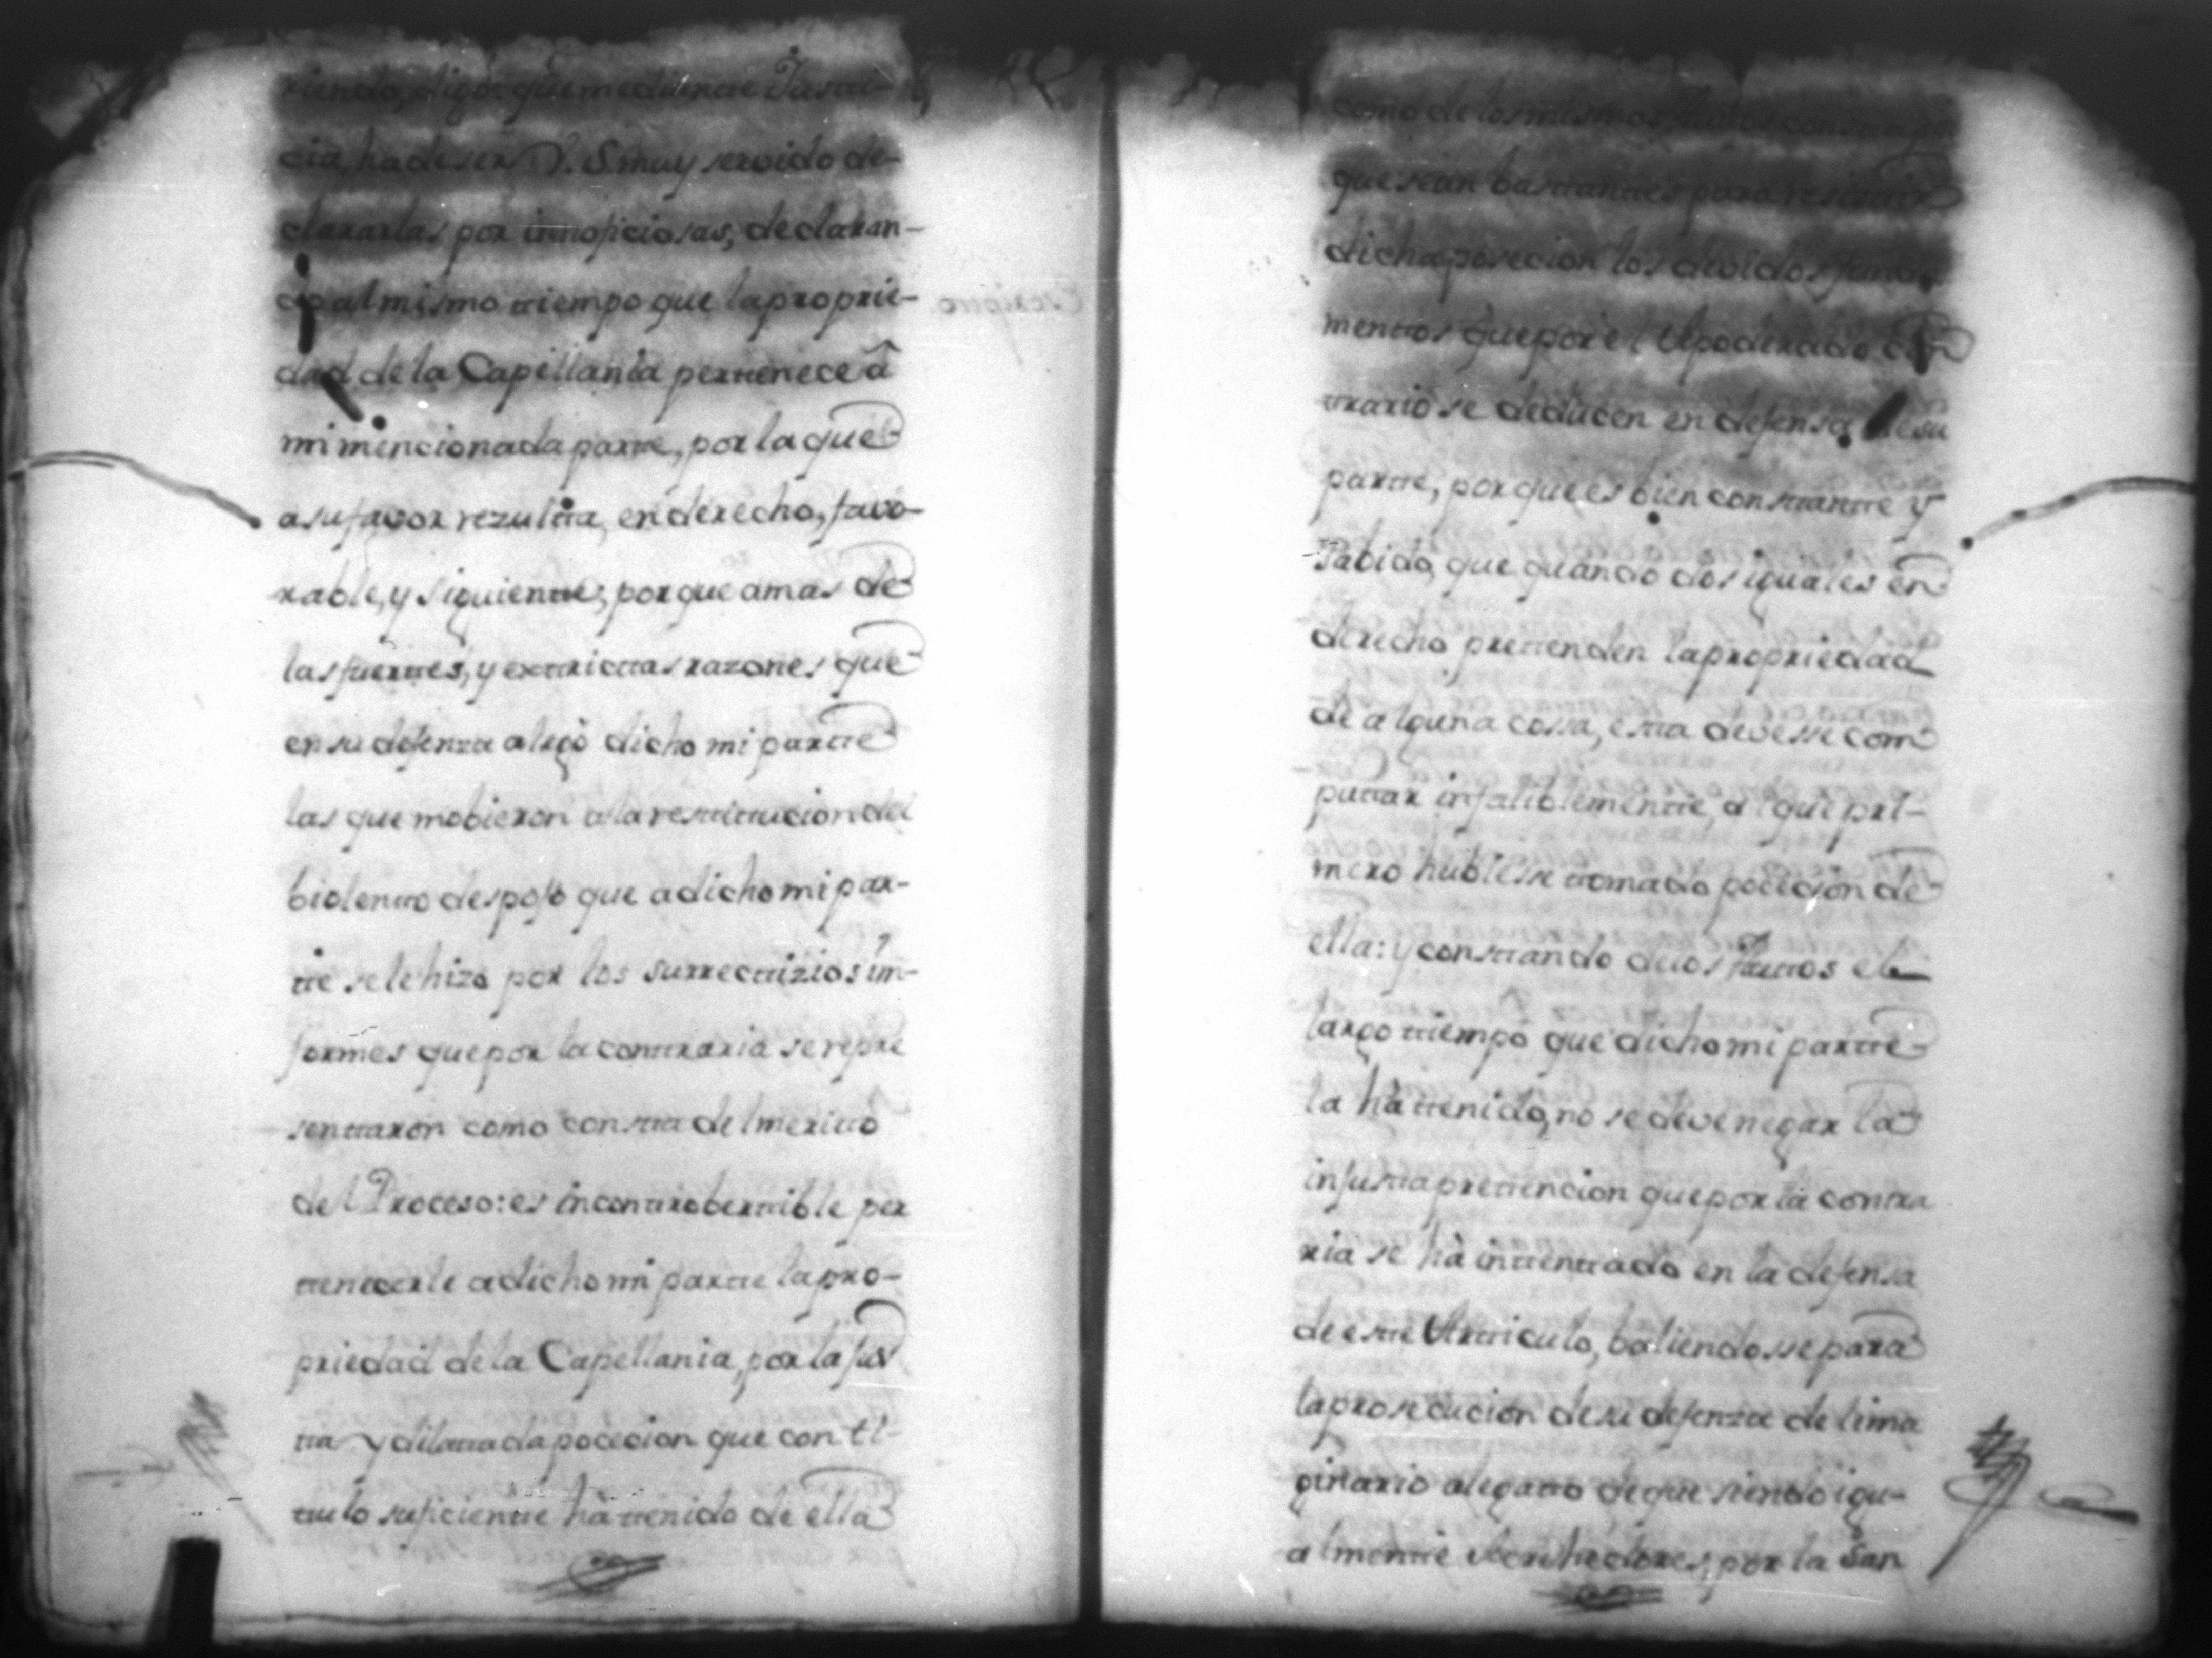 riendo, digo: que mediante Justi-
cia, ha de ser V. S. muy servido de-
clararlas por innoficiosas, declaran-
do al mismo ttiempo que la proprie-
dad de la Capellania perttenece â
mi mencionada partte, por la que
a su favor rezultta, en derecho, favo-
rable, y siguientte; porque amas de
las fuerttes, y exttricttas razones que
en su defenza alegò dicho mi partte
las que mobieron a la resttittucion del
biolentto despojo que a dicho mi par-
tte se le hizo por los surrecttizios in-
formes que por la conttraria se repre
senttaron como constta del meritto
del Proceso: es inconttroberttible per
ttenecerle a dicho mi partte la pro-
priedad de la Capellania, por la jus
tta y dilattada pocecion que con ti-
ttulo suficientte hà ttenido de ella
como de los mismos
que sean basttanttes para
dicha posecion los devidos funda
menttos que por el Apoderado con
ttrario se deducen en defensa de su
partte, porque es bien consttantte y
Sabido, que quando dos iguales en
derecho prettenden la propriedad
de alguna cossa, estta devesse com
puttar infaliblementte, al que pri-
mero hubiesse ttomado pocecion de
ella: y consttando de los Auttos el
largo ttiempo que dicho mi partte
la hà ttenido, no se deve negar la
injustta prettencion que por la contra
ria se hà inttenttado en la defensa
de estte Artticulo, baliendosse para
la prosecucion de su defenza del ima
ginario alegatto de que siendo igu-
almentte Acrehedores, por la San